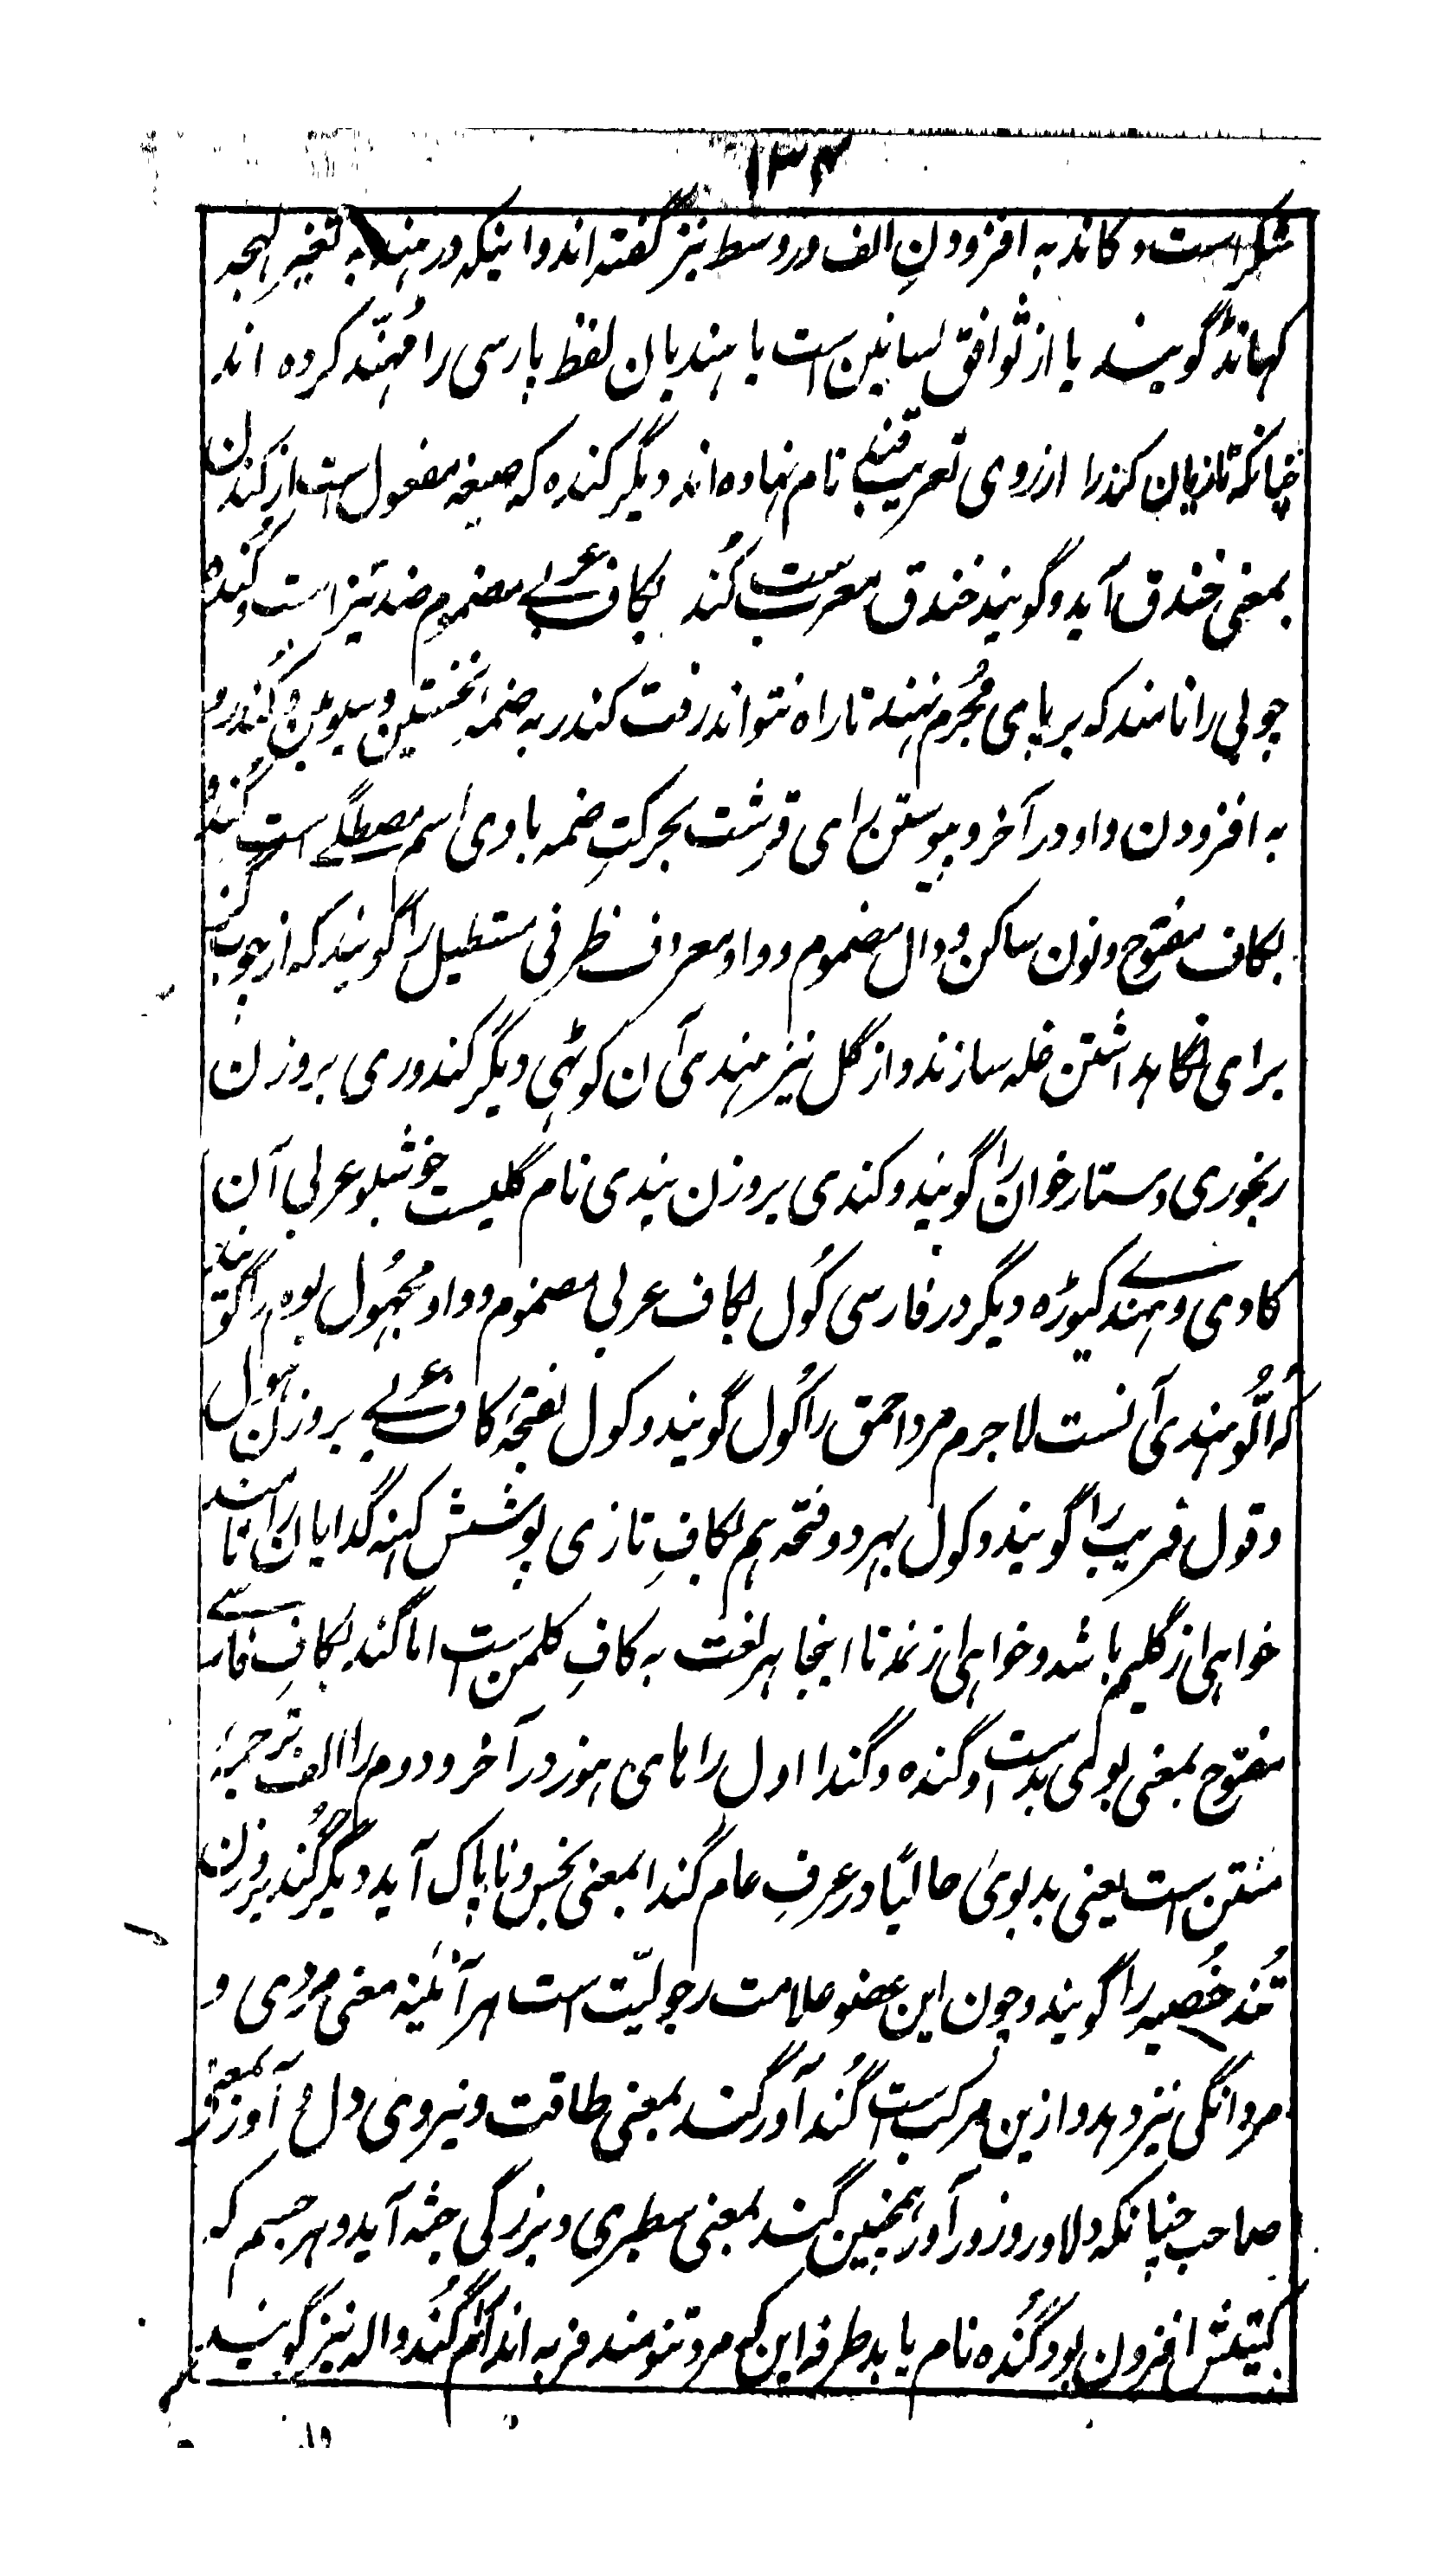 ۱۳۴
شکر است و کاند به افزودنِ الف در وسط نیز گفته اند و اینکه در هند به تغییرِ لهجه
کهانڈ گویند یا از توافق لسانین است یا هندیان لفظ پارسی را مُهنّد کرده اند
چنانکه تازیان کند را از روی تعریب قند نام نهاده اند دیگر کنده که صیغه مفعول است از کندن
بمعنی خندق آید و گویند خندق معرب است کُند بکاف عربے مضموم ضد تیز است و کُنده
چوبی را نامند که بر پای مُجرم نهند تا راه نتواند رفت کندر به ضمهٔ نخستین و سیومین و کُندرو
به افزودن واو در آخر و پیوستن رای قرشت بحرکتِ ضمه با وی اسم مصطگے است کَندُو
بکاف مفتوح و نون ساکن و دال مضموم و واو معروف ظرفی مستطیل را گویند که از چوب گز
برای نگاهداشتن غله سازند و از گل نیز هندی آن کوٹهی دیگر کندوری بروزن
رنجوری دستارخوان را گویند و کندی بروزن بندی نام گلیست خوشبو عربی آن
کادی و هندے کیوڑه دیگر در فارسی کُول بکاف عربی مضموم و واو مجهُول بوم را گویند
که اُلّو هندی آنست لاجرم مرد احمق را کُول گویند و کول بفتحهٔ کاف عربے بروزن هول
و قول فریب را گویند و کول بهر دو فتحه هم بکافِ تازی پوشش کهنه گدایان را نامند
خواهی از گلیم باشد و خواهی از نمد تا اینجا هر لغت به کافِ کلمن است اما گند بکافِ فارسے
مفتوح بمعنی بوی بد است و گنده و گندا اول را های هوز در آخر و دوم را الف ترجمهٔ
منتن است یعنی بدبوی حالیًا در عرفِ عام گندا بمعنی نجس و ناپاک آید دیگر گُند بروزن
تُند خُصیه را گویند و چون این عضو علامت رجولیّت است هر آئینه معنی مردی و
مردانگی نیز دهد و ازین مرکب است گُندآور گند بمعنی طاقت و نیروی دل و آور بمعنی
صاحب چنانکه دلاور و زورآور همچنین گند بمعنی سطبری و بزرگی جثه آید و هر جسم که
کمیتش افزون بود گُنده نام یابد طرفه این که مرد تنومند فربه اندام را گُندواله نیز گویند